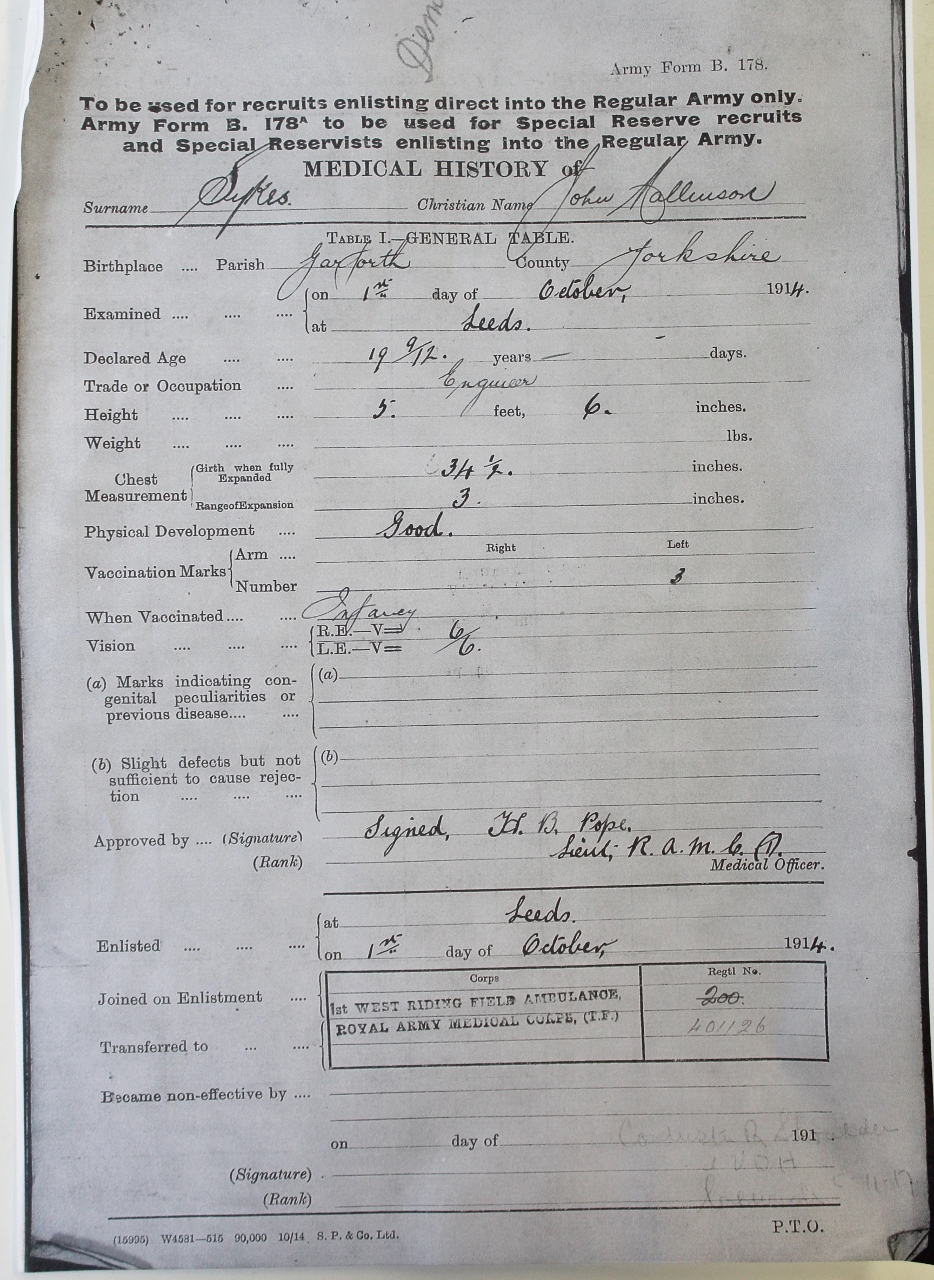 Dem
Army Form B. 178.
To be used for recruits enlisting direct into the Regular Army only.
Army Form B. 178A to be used for Special Reserve recruits
and Special Reservists enlisting into the Regular Army.
MEDICAL HISTORY of
Surname Sykes. Christian Name John Mallinson
TABLE I.—GENERAL TABLE.
Birthplace .... Parish Garforth County Yorkshire
Examined .... .... .... on 1st day of October, 1914.
at Leeds.
Declared Age .... .... 19 9/12. years — days.
Trade or Occupation .... Engineer
Height .... .... .... 5. feet, 6. inches.
Weight .... .... .... lbs.
Chest Measurement Girth when fully Expanded 34 ½. inches.
Range of Expansion 3. inches.
Physical Development .... Good.
Right Left
Vaccination Marks Arm ....
Number 3
When Vaccinated .... .... Infancy
Vision .... .... .... R.E.—V= 6/6.
L.E.—V=
(a) Marks indicating con- (a)
genital peculiarities or
previous disease.... ....
(b) Slight defects but not (b)
sufficient to cause rejec-
tion .... .... ....
Approved by .... (Signature) Signed, H. B. Pope.
(Rank) Lieut, R.A.M.C. (T).
Medical Officer.
Enlisted .... .... .... at Leeds.
on 1st day of October, 1914.
Corps Regtl No.
Joined on Enlistment .... 1st WEST RIDING FIELD AMBULANCE, 200.
ROYAL ARMY MEDICAL CORPS, (T.F.) 401126
Transferred to ... ....
Became non-effective by ....
on day of 191
V D H
(Signature)
(Rank)
P.T.O.
(15995) W4581—515 90,000 10/14 S. P. & Co. Ltd.